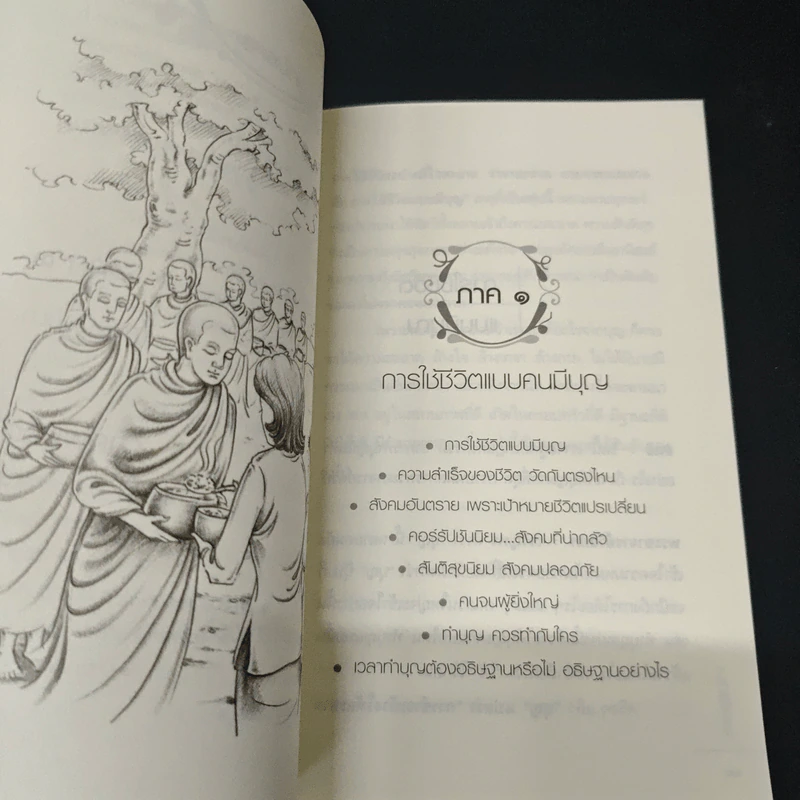 ภาค ๑
การใช้ชีวิตแบบคนมีบุญ
• การใช้ชีวิตแบบมีบุญ
• ความสำเร็จของชีวิต วัดกันตรงไหน
• สังคมอันตราย เพราะเป้าหมายชีวิตแปรเปลี่ยน
• คอร์รัปชันนิยม...สังคมที่น่ากลัว
• สันติสุขนิยม สังคมปลอดภัย
• คนจนผู้ยิ่งใหญ่
• ทำบุญ ควรทำกับใคร
• เวลาทำบุญต้องอธิษฐานหรือไม่ อธิษฐานอย่างไร